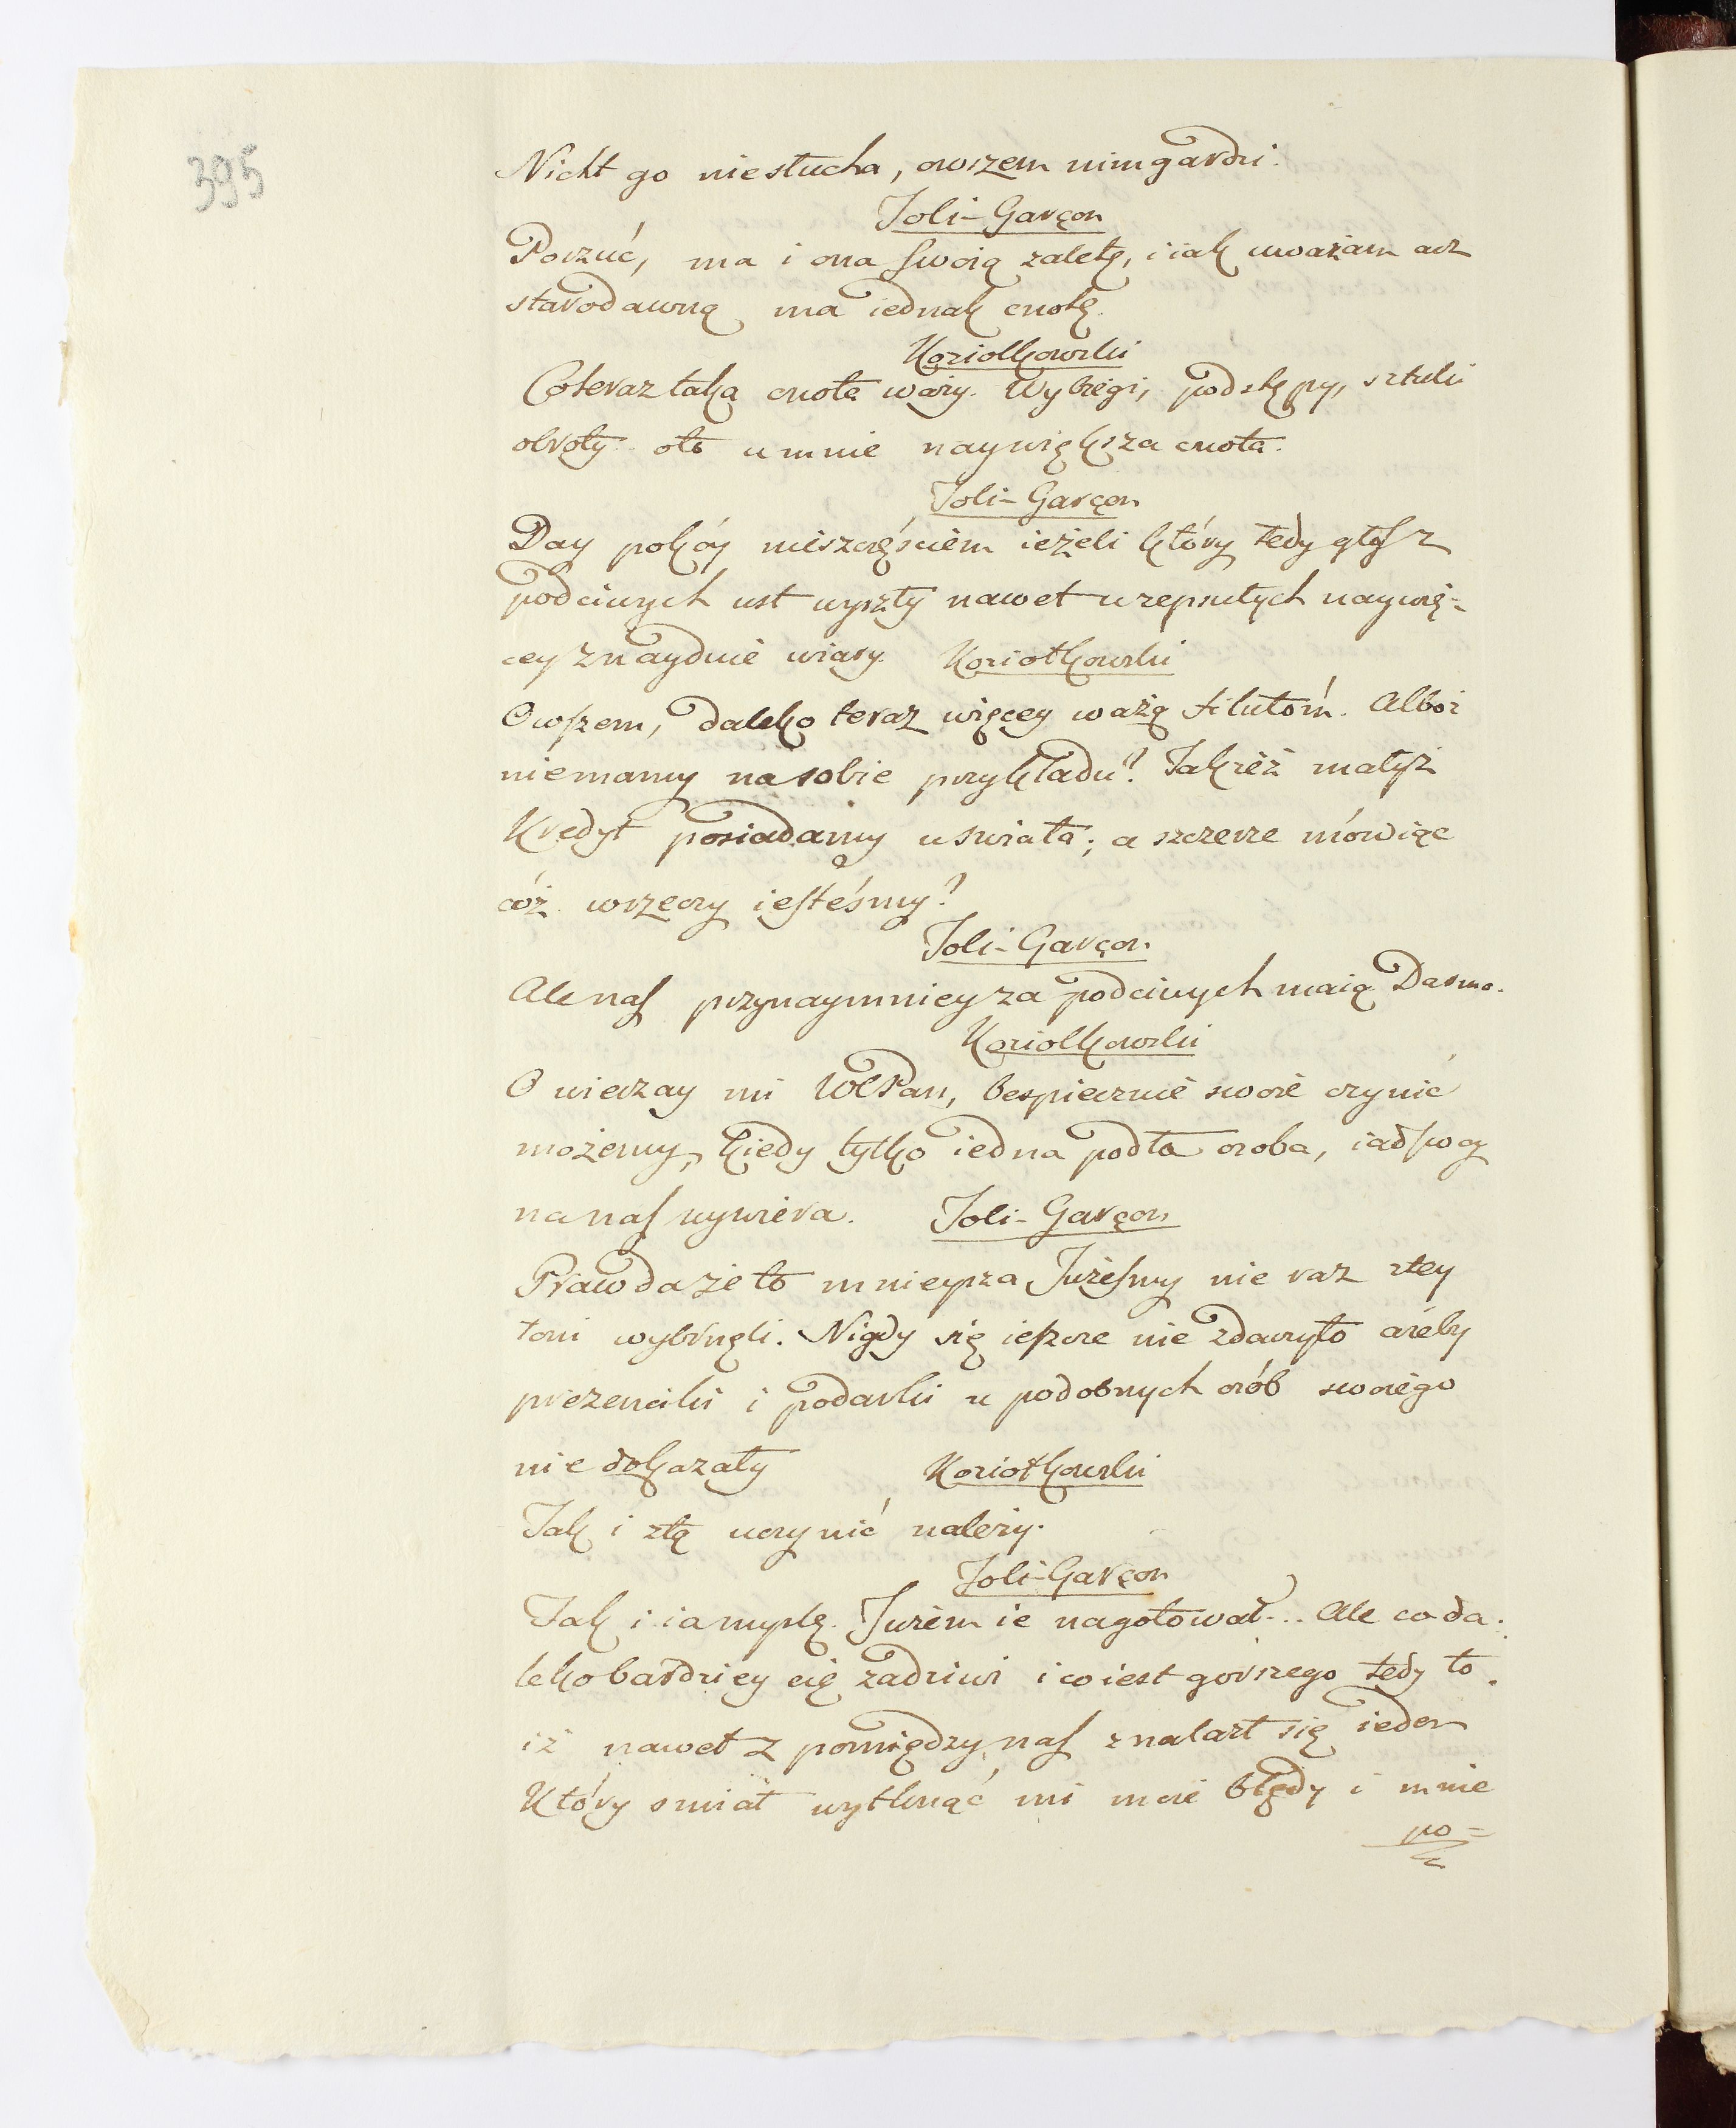 395
Nicht go niesłucha, owszem nimgardzi.
Joli-Garçon
Porzuć, ma i ona swoią zaletę, i iak uważam acz
starodawną ma iednak cnotę.
Koziolkowski
Coteraz taka cnota waży. Wybiegi, podstępy, sztuki
obroty oto umnie naywiększa cnota.
Joli-Garçon
Day pokóy nieszczęściem ieżeli który tedy głos z
podciwych ust wyszły nawet uzepsutych naywię=
cey znayduie wiary. Koziołkowski
Owszem, daleko teraz więcey ważą filutów. Alboż
niemamy nasobie przykładu? Jakżeż małyż
Kredyt posiadamy uświata; a szczerze mówiąc
cóż wrzeczy iesteśmy?
Joli-Garçon
Ale nas przynaymniey za podciwych maią Darmo.
Koziolkowski
O wierzay mi WPan, bespiecznie swoie czynić
możemy, kiedy tylko iedna podła osoba, iad swoy
na nas wywiera. Joli-Garçon
Prawda że to mnieysza Jużeśmy nie raz ztey
toni wybrnęli. Nigdy się ieszcze nie zdarzyło ażeby
prezenciki i podarki u podobnych osób swoiego
niedokazały Koziołkowski
Tak i ztą uczynić należy.
Joli-Garçon
Tak i ia myślę. Jużem ie nagotował... Ale co da=
leko bardziey cię zadziwi i co iest gorszego tedy to
iż nawet z pomiędzy nas znalazł się ieden
Który śmiał wytknąć mi moie błędy i mnie
po=